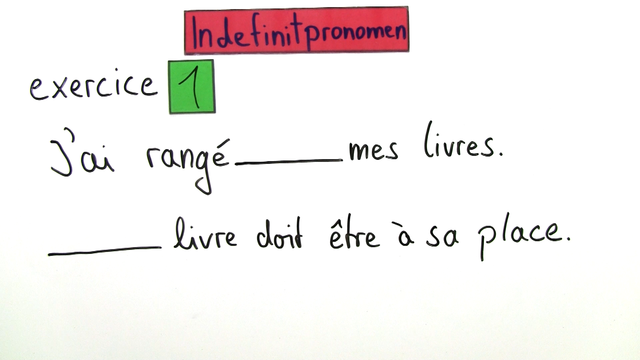 Indefinitpronomen
exercice 1
J'ai rangé ________ mes livres.
________ livre doit être à sa place.